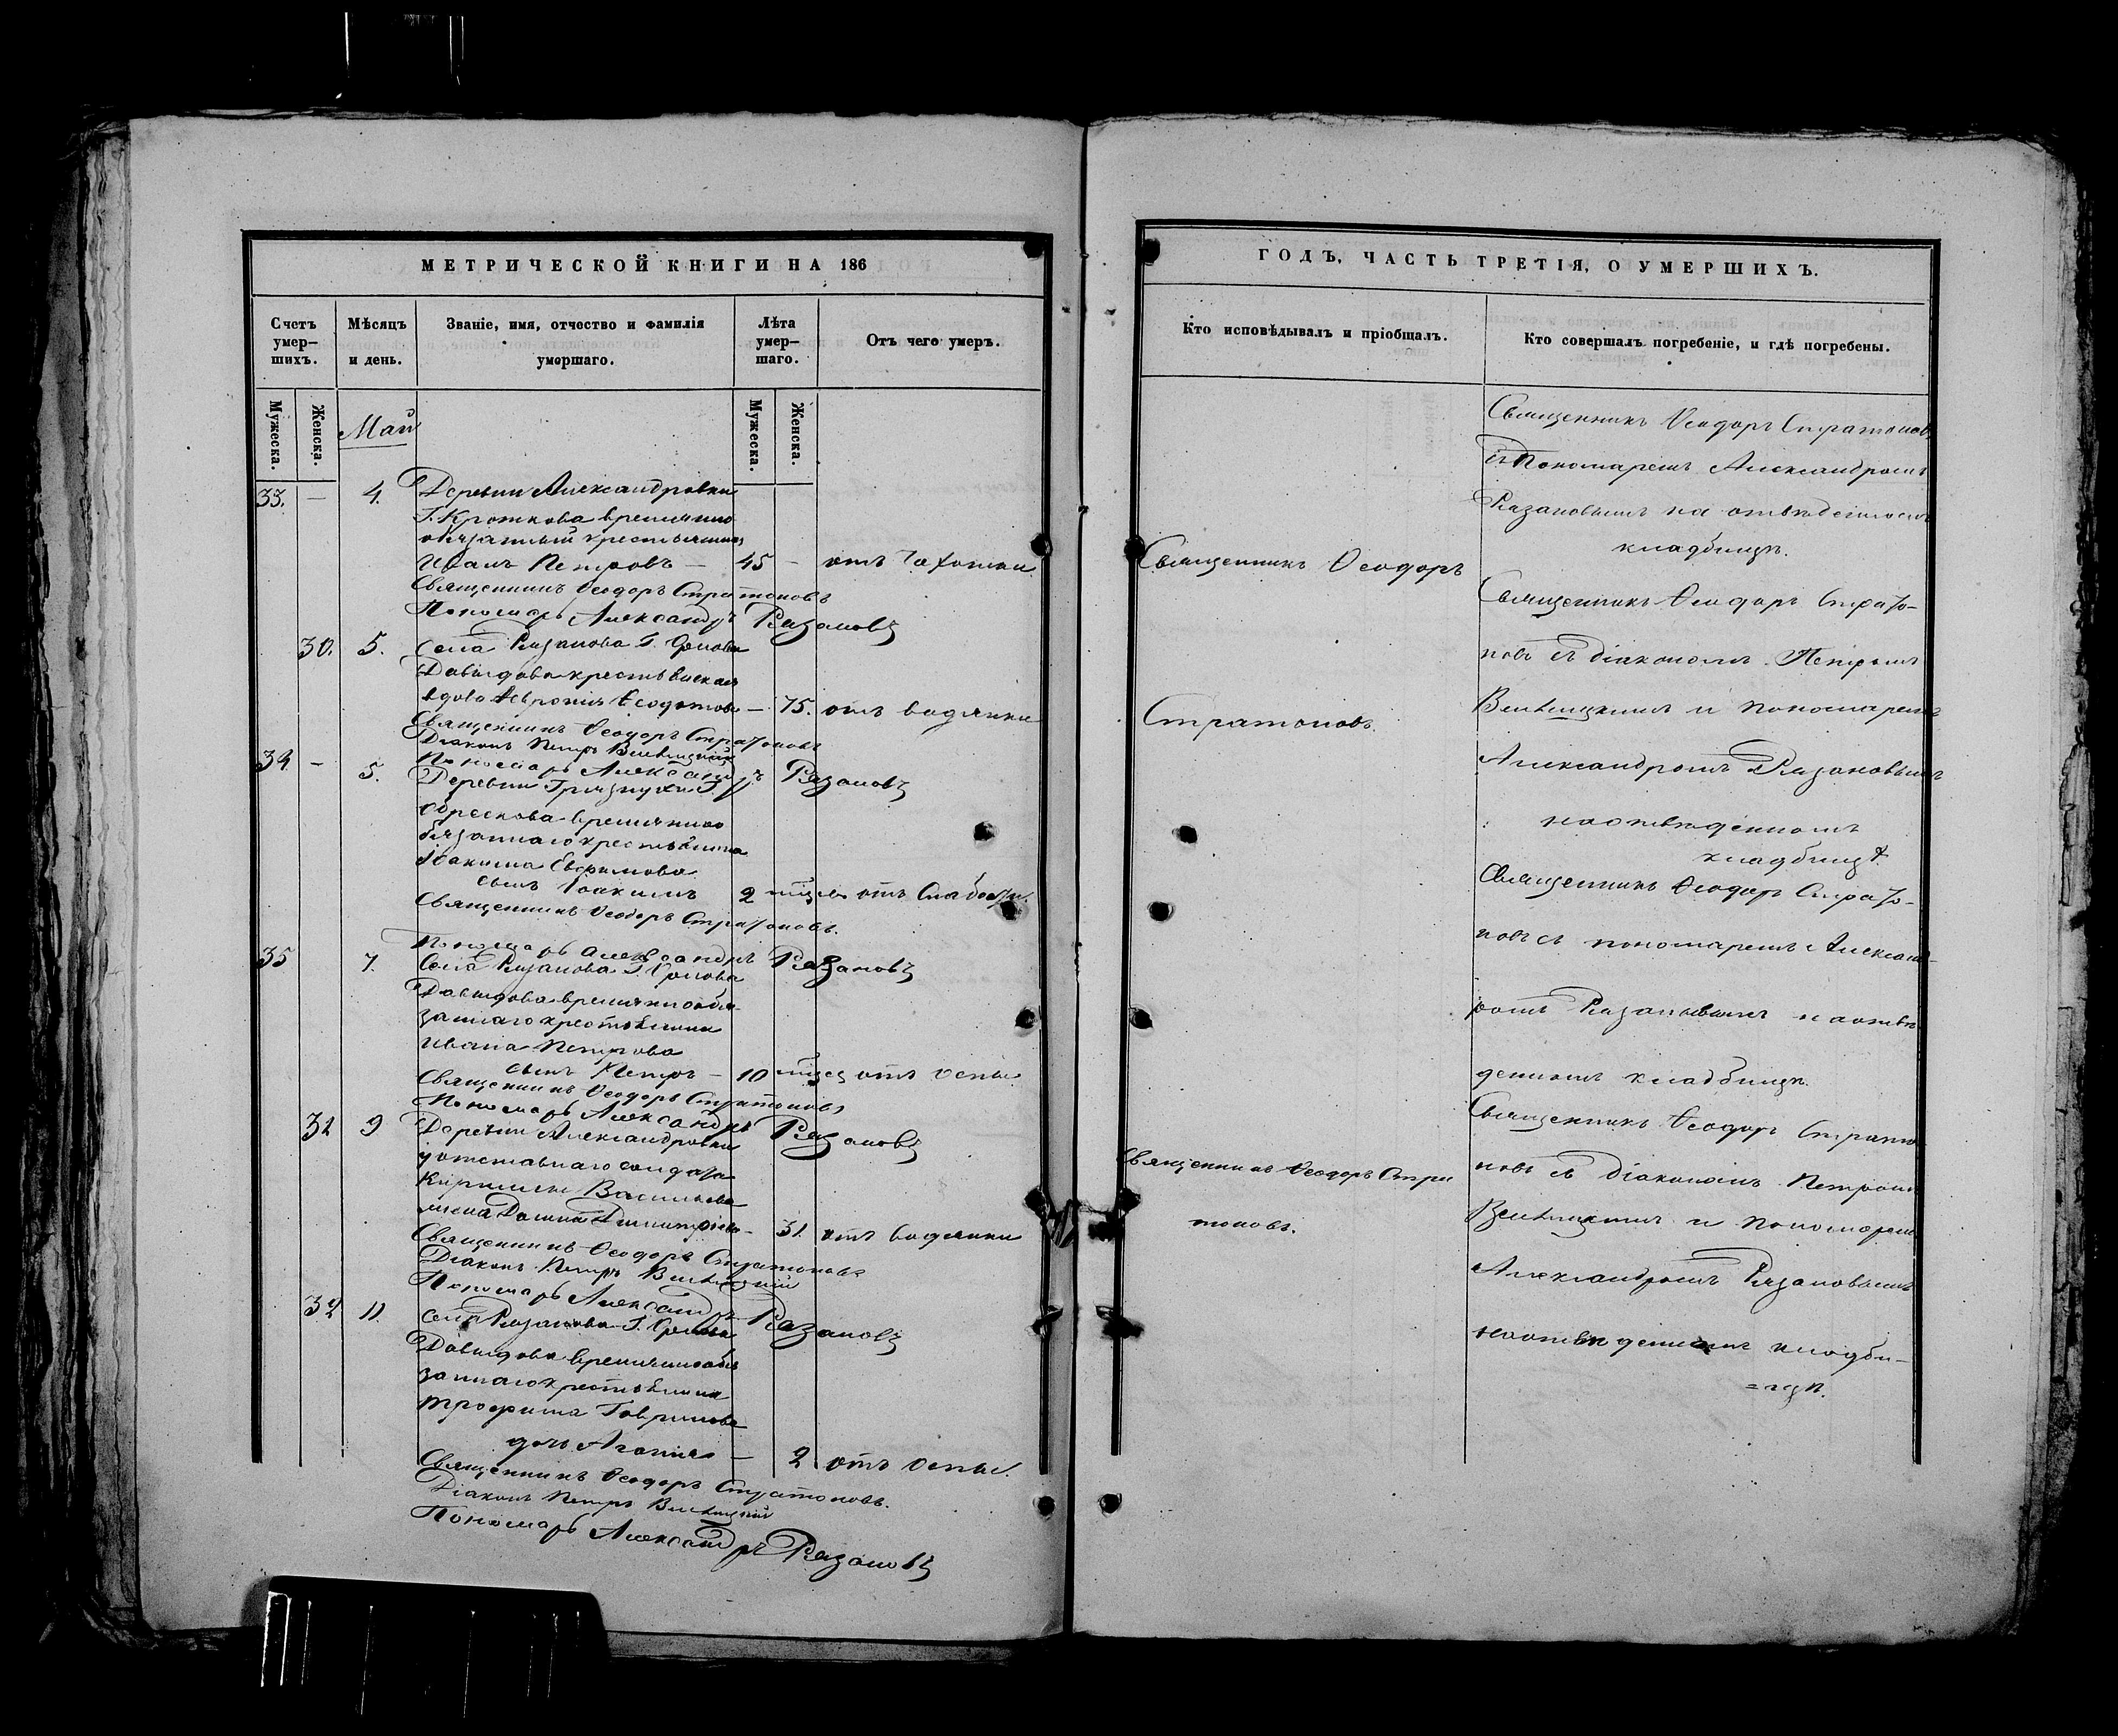 МЕТРИЧЕСКОЙ КНИГИ НА 186
Счетъ умер-шихъ.
Мѣсяцъ и день.
Званіе, имя, отчество и фамилія умершаго.
Лѣта умер-шаго.
Отъ чего умеръ.
Мужеска.
Женска.
Май
Мужеска.
Женска.
33. — 4. Деревни Александровки
Г. Кроткова временно
обязанный крестьянинъ
Иванъ Петровъ — 45 — отъ чахотки
Священникъ Ѳеодоръ Стратоновъ
Пономарь Александръ Рязановъ
30. 5. Села Рязанова Г. Орлова
Давыдова крестьянская
вдова Ѳеодотова — 75. отъ водянки
Священникъ Ѳеодоръ Стратоновъ
Діаконъ Петръ
Пономарь Александръ Рязановъ
34 — 5. Деревни Грязнухи Г.
Обрескова временно
обязаннаго крестьянина
Іоакима Евфимова
сынъ Іоакимъ 2 мѣся отъ слабости.
Священникъ Ѳеодоръ Стратоновъ.
Пономарь Александръ Рязановъ
35 7. Села Рязанова Г. Орлова
Давыдова временнообя-
заннаго крестьянина
Ивана Петрова
сынъ Петръ — 10 мѣсяц отъ оспы.
Священникъ Ѳеодоръ Стратоновъ
Пономарь Александръ Рязановъ
31 9 Деревни Александровки
отставнаго солдата
Кириллы Васильева
жена Димитріева — 31. отъ водянки
Священникъ Ѳеодоръ Стратоновъ
Діаконъ Петръ
Пономарь Александръ Рязановъ
32 11. Села Рязанова Г. Орлова
Давыдова временнообя
заннаго крестьянина
Трофима Гаврилова
дочь Агапія — 2 отъ оспы.
Священникъ Ѳеодоръ Стратоновъ.
Діаконъ Петръ
Пономарь Александръ Рязановъ
ГОДЪ, ЧАСТЬ ТРЕТІЯ, О УМЕРШИХЪ.
Кто исповѣдывалъ и пріобщалъ.
Кто совершалъ погребеніе, и гдѣ погребены.
Священникъ Ѳеодоръ
Стратоновъ.
Священникъ Ѳеодоръ Стра
тоновъ.
Священникъ Ѳеодоръ Стратонов
съ Пономаремъ Александромъ
Рязановымъ на отвѣденномъ
кладбищѣ.
Священникъ Ѳеодоръ Страто-
новъ съ діакономъ Петромъ
и пономаремъ
Александромъ Рязановымъ
на отвѣденномъ
кладбищѣ
Священникъ Ѳеодоръ Страто-
новъ съ пономаремъ Александ-
ромъ Рязановымъ на отвѣ
денномъ кладбищѣ.
Священникъ Ѳеодоръ Страто
новъ съ діакономъ Петромъ
и пономарем
Александромъ Рязановымъ
на отвѣденномъ кладби-
=щѣ.